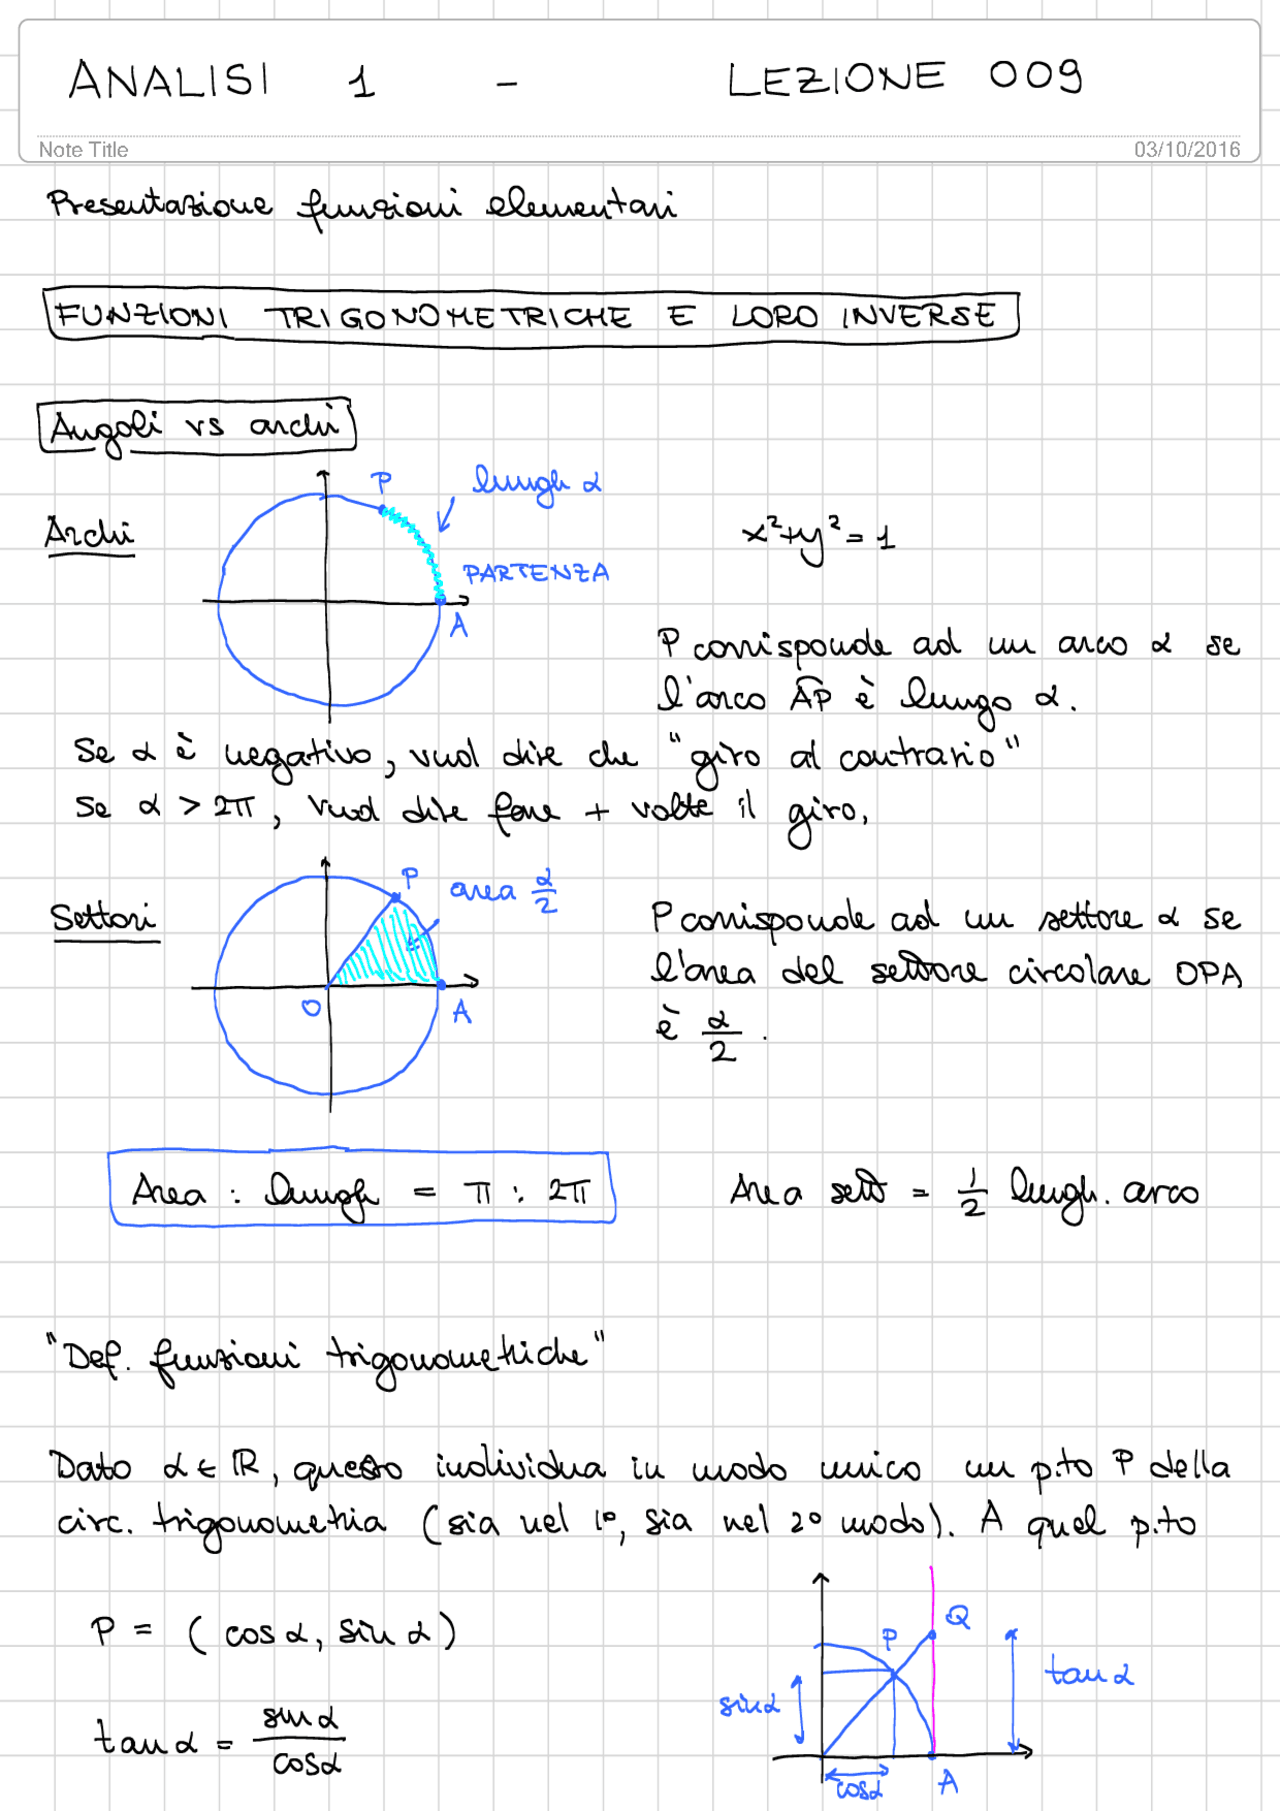 ANALISI 1 - LEZIONE 009
Note Title 03/10/2016
Presentazione funzioni elementari
FUNZIONI TRIGONOMETRICHE E LORO INVERSE
Angoli vs archi
P lungh α
Archi
x²+y²=1
PARTENZA
A
P corrisponde ad un arco α se
l'arco A͡P è lungo α.
Se α è negativo, vuol dire che "giro al contrario"
Se α > 2π, vuol dire fare + volte il giro.
P area α/2
Settori
P corrisponde ad un settore α se
l'area del settore circolare OPA
O A
è α/2.
Area : lungh = π : 2π Area sett = 1/2 lungh. arco
"Def. funzioni trigonometriche"
Dato α ∈ ℝ, questo individua in modo unico un p.to P della
circ. trigonometria (sia nel 1º, sia nel 2º modo). A quel p.to
P = (cos α, sin α)
P Q
sin α tan α
tan α = sin α / cos α
cos α A